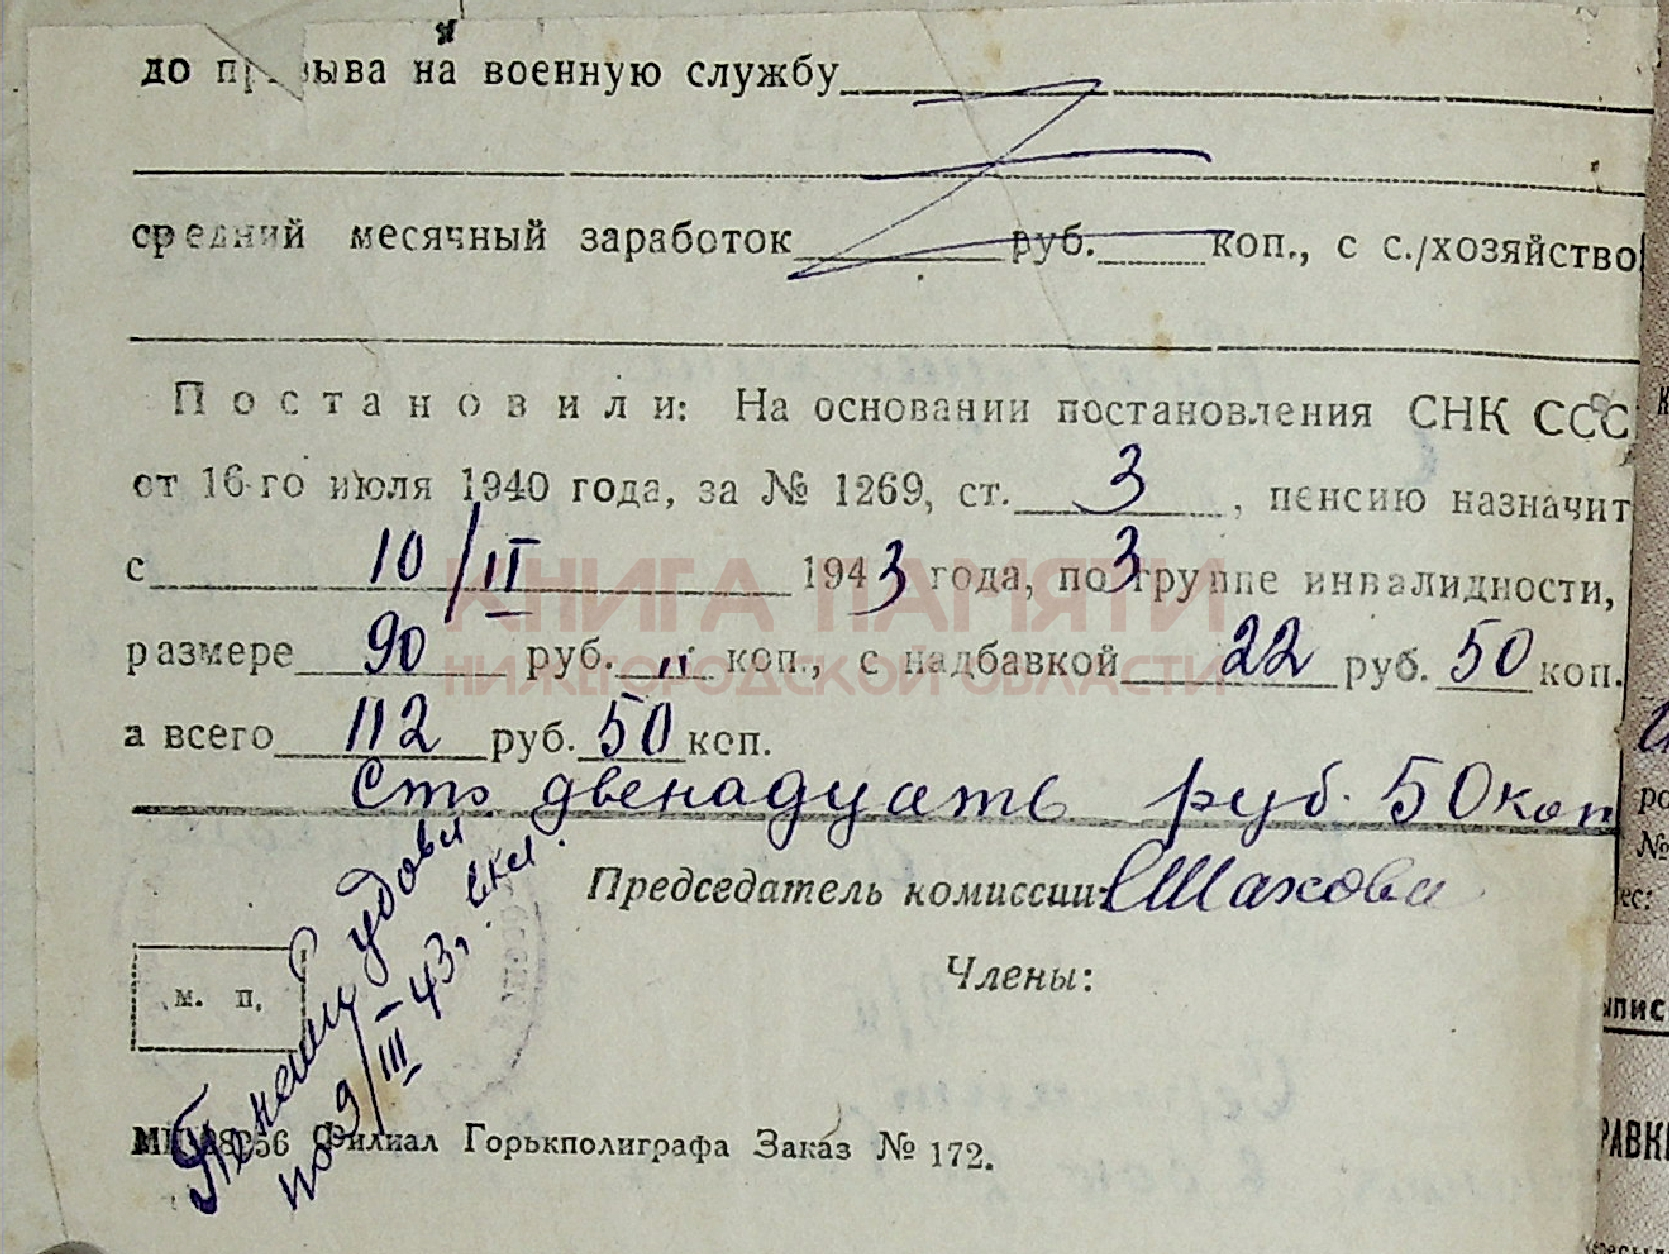 до призыва на военную службу
средний месячный заработок руб. коп., с с./хозяйство
Постановили: На основании постановления СНК ССС
от 16-го июля 1940 года, за № 1269, ст. 3, пенсию назначит
с 10/II 1943 года, по 3 группе инвалидности,
размере 90 руб. " коп., с надбавкой 22 руб. 50 коп.
а всего 112 руб. 50 коп.
Сто двенадцать руб. 50 коп
Председатель комиссии: Шахова
Члены:
м. п.
удовл
по 9/III-43, вкл.
Филиал Горькполиграфа Заказ № 172.
КНИГА ПАМЯТИ
НИЖЕГОРОДСКОЙ ОБЛАСТИ